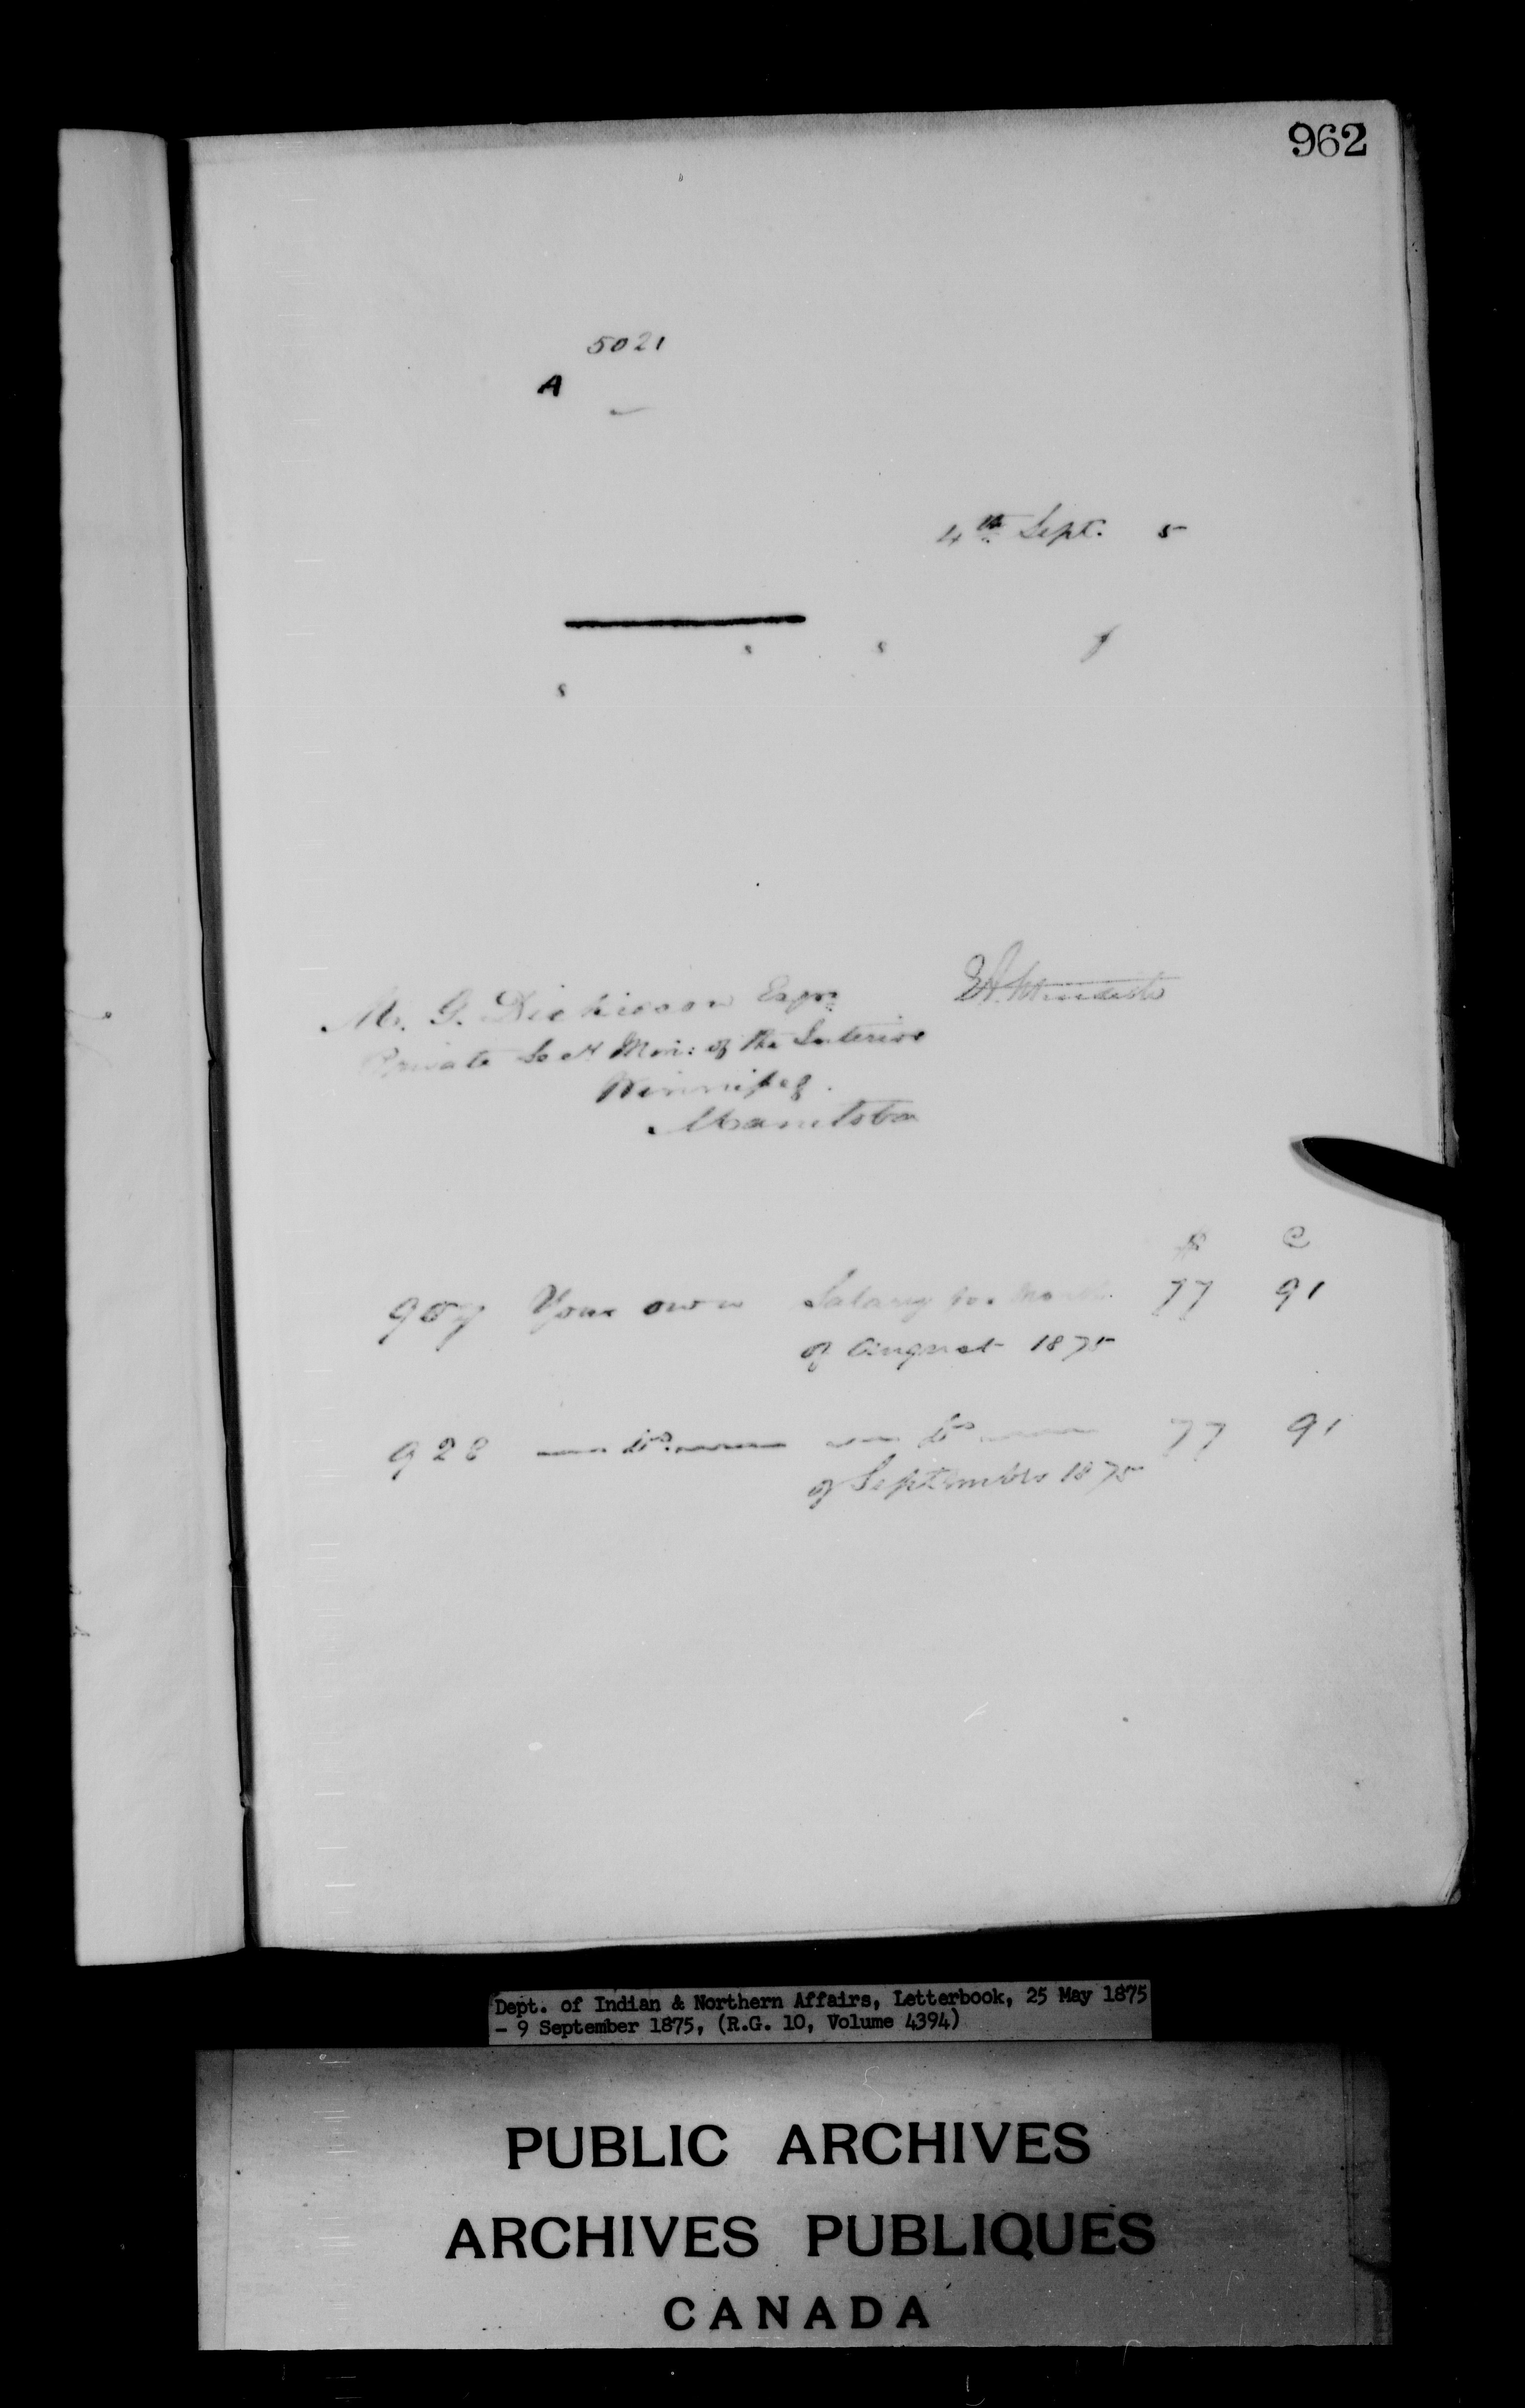 962
5021
A
4th Sept. 5
s s f
s
M. G. Dickieson Esqre
Private Secy Min: of the Interior
Winnipeg.
Manitoba
$ C
907 Your own Salary for Month 77 91
of August 1875
928 — do — — do — 77 91
of September 1875
Dept. of Indian & Northern Affairs, Letterbook, 25 May 1875
- 9 September 1875, (R.G. 10, Volume 4394)
PUBLIC ARCHIVES
ARCHIVES PUBLIQUES
CANADA